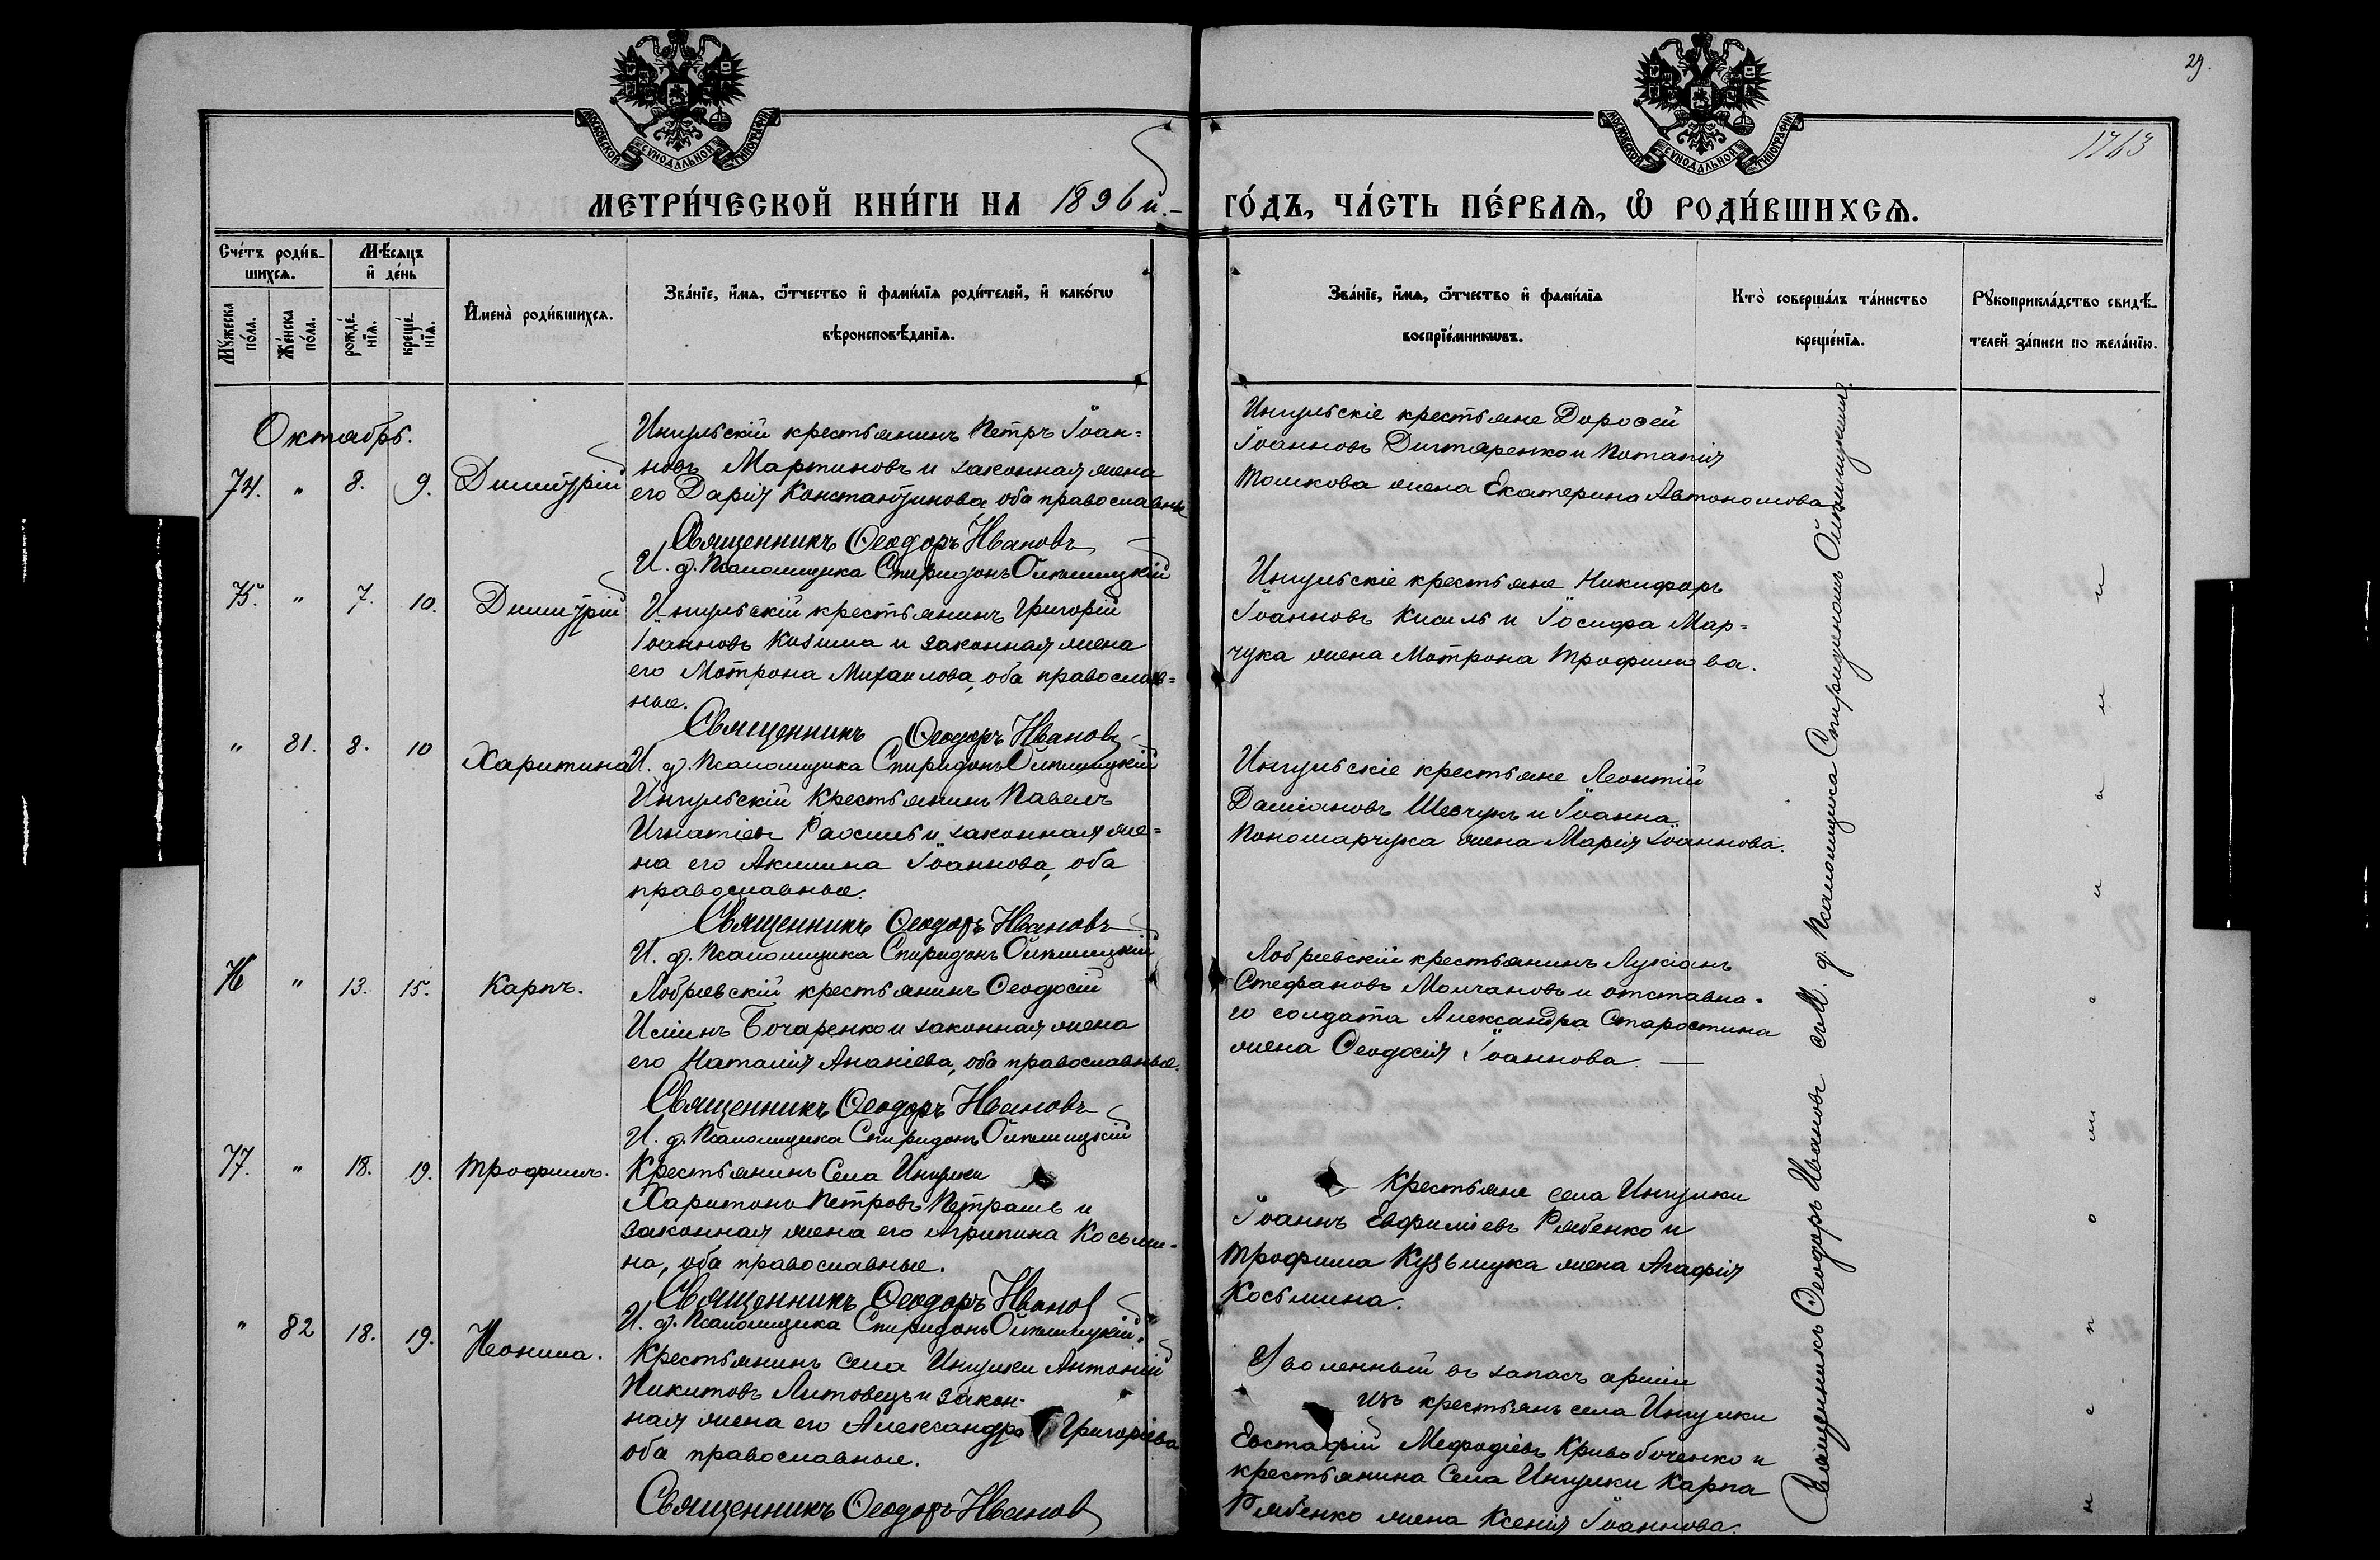 29.
1763
МОСКОВСКОЙ СѴНОДАЛЬНОЙ ТИПОГРАФІИ
МОСКОВСКОЙ СѴНОДАЛЬНОЙ ТИПОГРАФІИ
МЕТРИ́ЧЕСКОЙ КНИ́ГИ НА 1896 й.
ГО́ДЪ, ЧА́СТЬ ПЕ́РВАѦ, Ѽ РОДИ́ВШИХСѦ.
Сче́тъ роди́в-
шихсѧ.
Мѣ́сѧцъ
и҆ де́нь
Мꙋ́жеска
по́ла.
Же́нска
по́ла.
рожде́-
нїѧ.
креще́-
нїѧ.
И҆мена̀ роди́вшихсѧ.
Зва́нїе, и҆́мѧ, ѻ҆́тчество и҆ фами́лїѧ роди́телей, и҆ како́гѡ
вѣроисповѣ́данїѧ.
Зва́нїе, и҆́мѧ, ѻ҆́тчество и҆ фами́лїѧ
воспрїе́мникѡвъ.
Кто̀ соверша́лъ та́инство
креще́нїѧ.
Рꙋкоприкла́дство свидѣ́-
телей за́писи по жела́нїю.
Октябрь.
74. " 8. 9. Димитрій
Ингульскій крестьянинъ Петръ Іоан-
новъ Мартиновъ и законная жена
его Дарія Константинова оба православные
Священникъ Ѳеодоръ Ивановъ
И. д. Псаломщика Спиридонъ
Ингульскіе крестьяне Дороѳей
Іоанновъ Дигтяренко и Потапія
Томкова жена Екатерина Автономова
75. " 7. 10. Димитрій
Ингульскій крестьянинъ Григорій
Іоанновъ Козима и законная жена
его Мотрона Михаилова, оба православ-
ные.
Священникъ Ѳеодоръ Ивановъ
И. д. Псаломщика Спиридонъ
Ингульскіе крестьяне Никифоръ
Іоанновъ Кисиль и Іосифа Мар-
чука жена Мотрона Трофимова.
" 81. 8. 10 Харитина
Ингульскій крестьянинъ Павелъ
Игнатіевъ и законная же-
на его Акилина Іоаннова, оба
православные.
Священникъ Ѳеодоръ Ивановъ
И. д. Псаломщика Спиридонъ
Ингульскіе крестьяне Леонтій
Даміановъ Шевчукъ и Іоанна
Пономарчука жена Марія Іоаннова.
76 " 13. 15. Карпъ.
крестьянинъ Ѳеодосій
Бочаренко и законная жена
его Наталія Ананіева, оба православные.
Священникъ Ѳеодоръ Ивановъ
И. д. Псаломщика Спиридонъ
крестьянинъ Лукіанъ
Стефановъ Молчановъ и отставна-
го солдата Александра Старостина
жена Ѳеодосія Іоаннова. —
77. " 18. 19. Трофимъ.
Крестьянинъ Села Ингулки
Харитонъ Петровъ Петрашъ и
законная жена его Агрипина Косьми-
на, оба православные.
Священникъ Ѳеодоръ Ивановъ
И. д. Псаломщика Спиридонъ
Крестьяне села Ингулки
Іоаннъ Евфиміевъ Рябенко и
Трофима Кузьмука жена Агафія
Косьмина.
" 82 18. 19. Неонила.
Крестьянинъ села Ингулки Антоній
Никитовъ Литовецъ и закон-
ная жена его Александра Григоріева
оба православные.
Священникъ Ѳеодоръ Ивановъ
Уволенный въ запасъ арміи
изъ крестьянъ села Ингулки
Евстафій Меѳодіевъ Кривобоченко и
крестьянина Села Ингулки Карпа
Рябенко жена Ксенія Іоаннова.
Священникъ Ѳеодоръ Ивановъ съ И. д. Псаломщика Спиридономъ